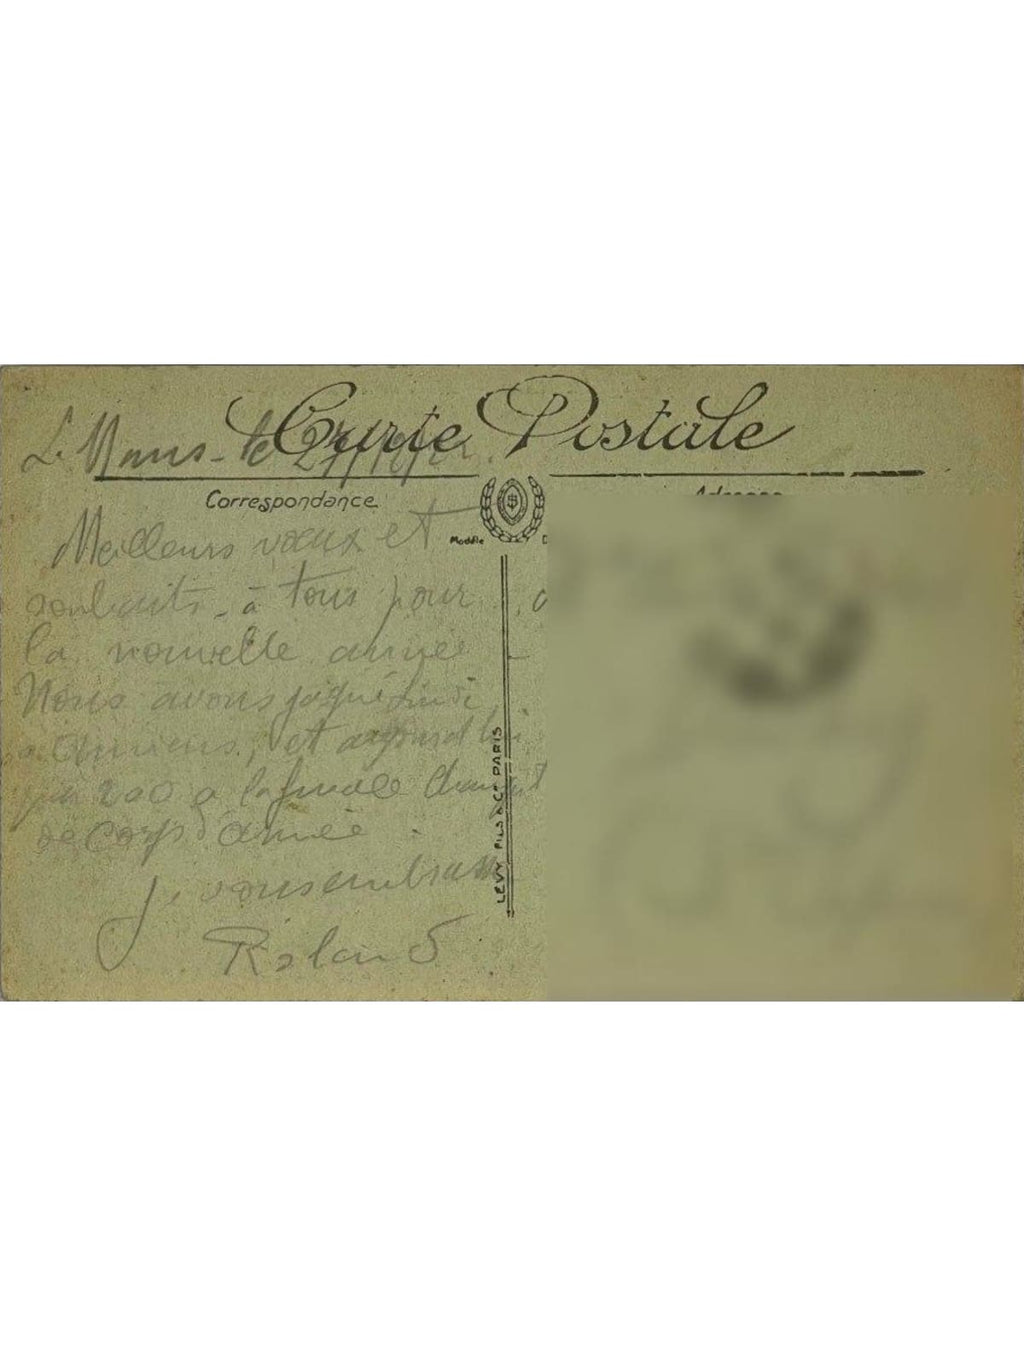 Carte Postale
Le Mans - le 27/12/
Correspondance
Adresse
Meilleurs vœux et
Modèle
souhaits - à tous pour
la nouvelle année -
Nous avons
à Amiens, et aujourd'hui
par 2 a 0 a la finale
de Corps d'armée.
Je vous embrasse
Roland
LEVY FILS & Cie PARIS